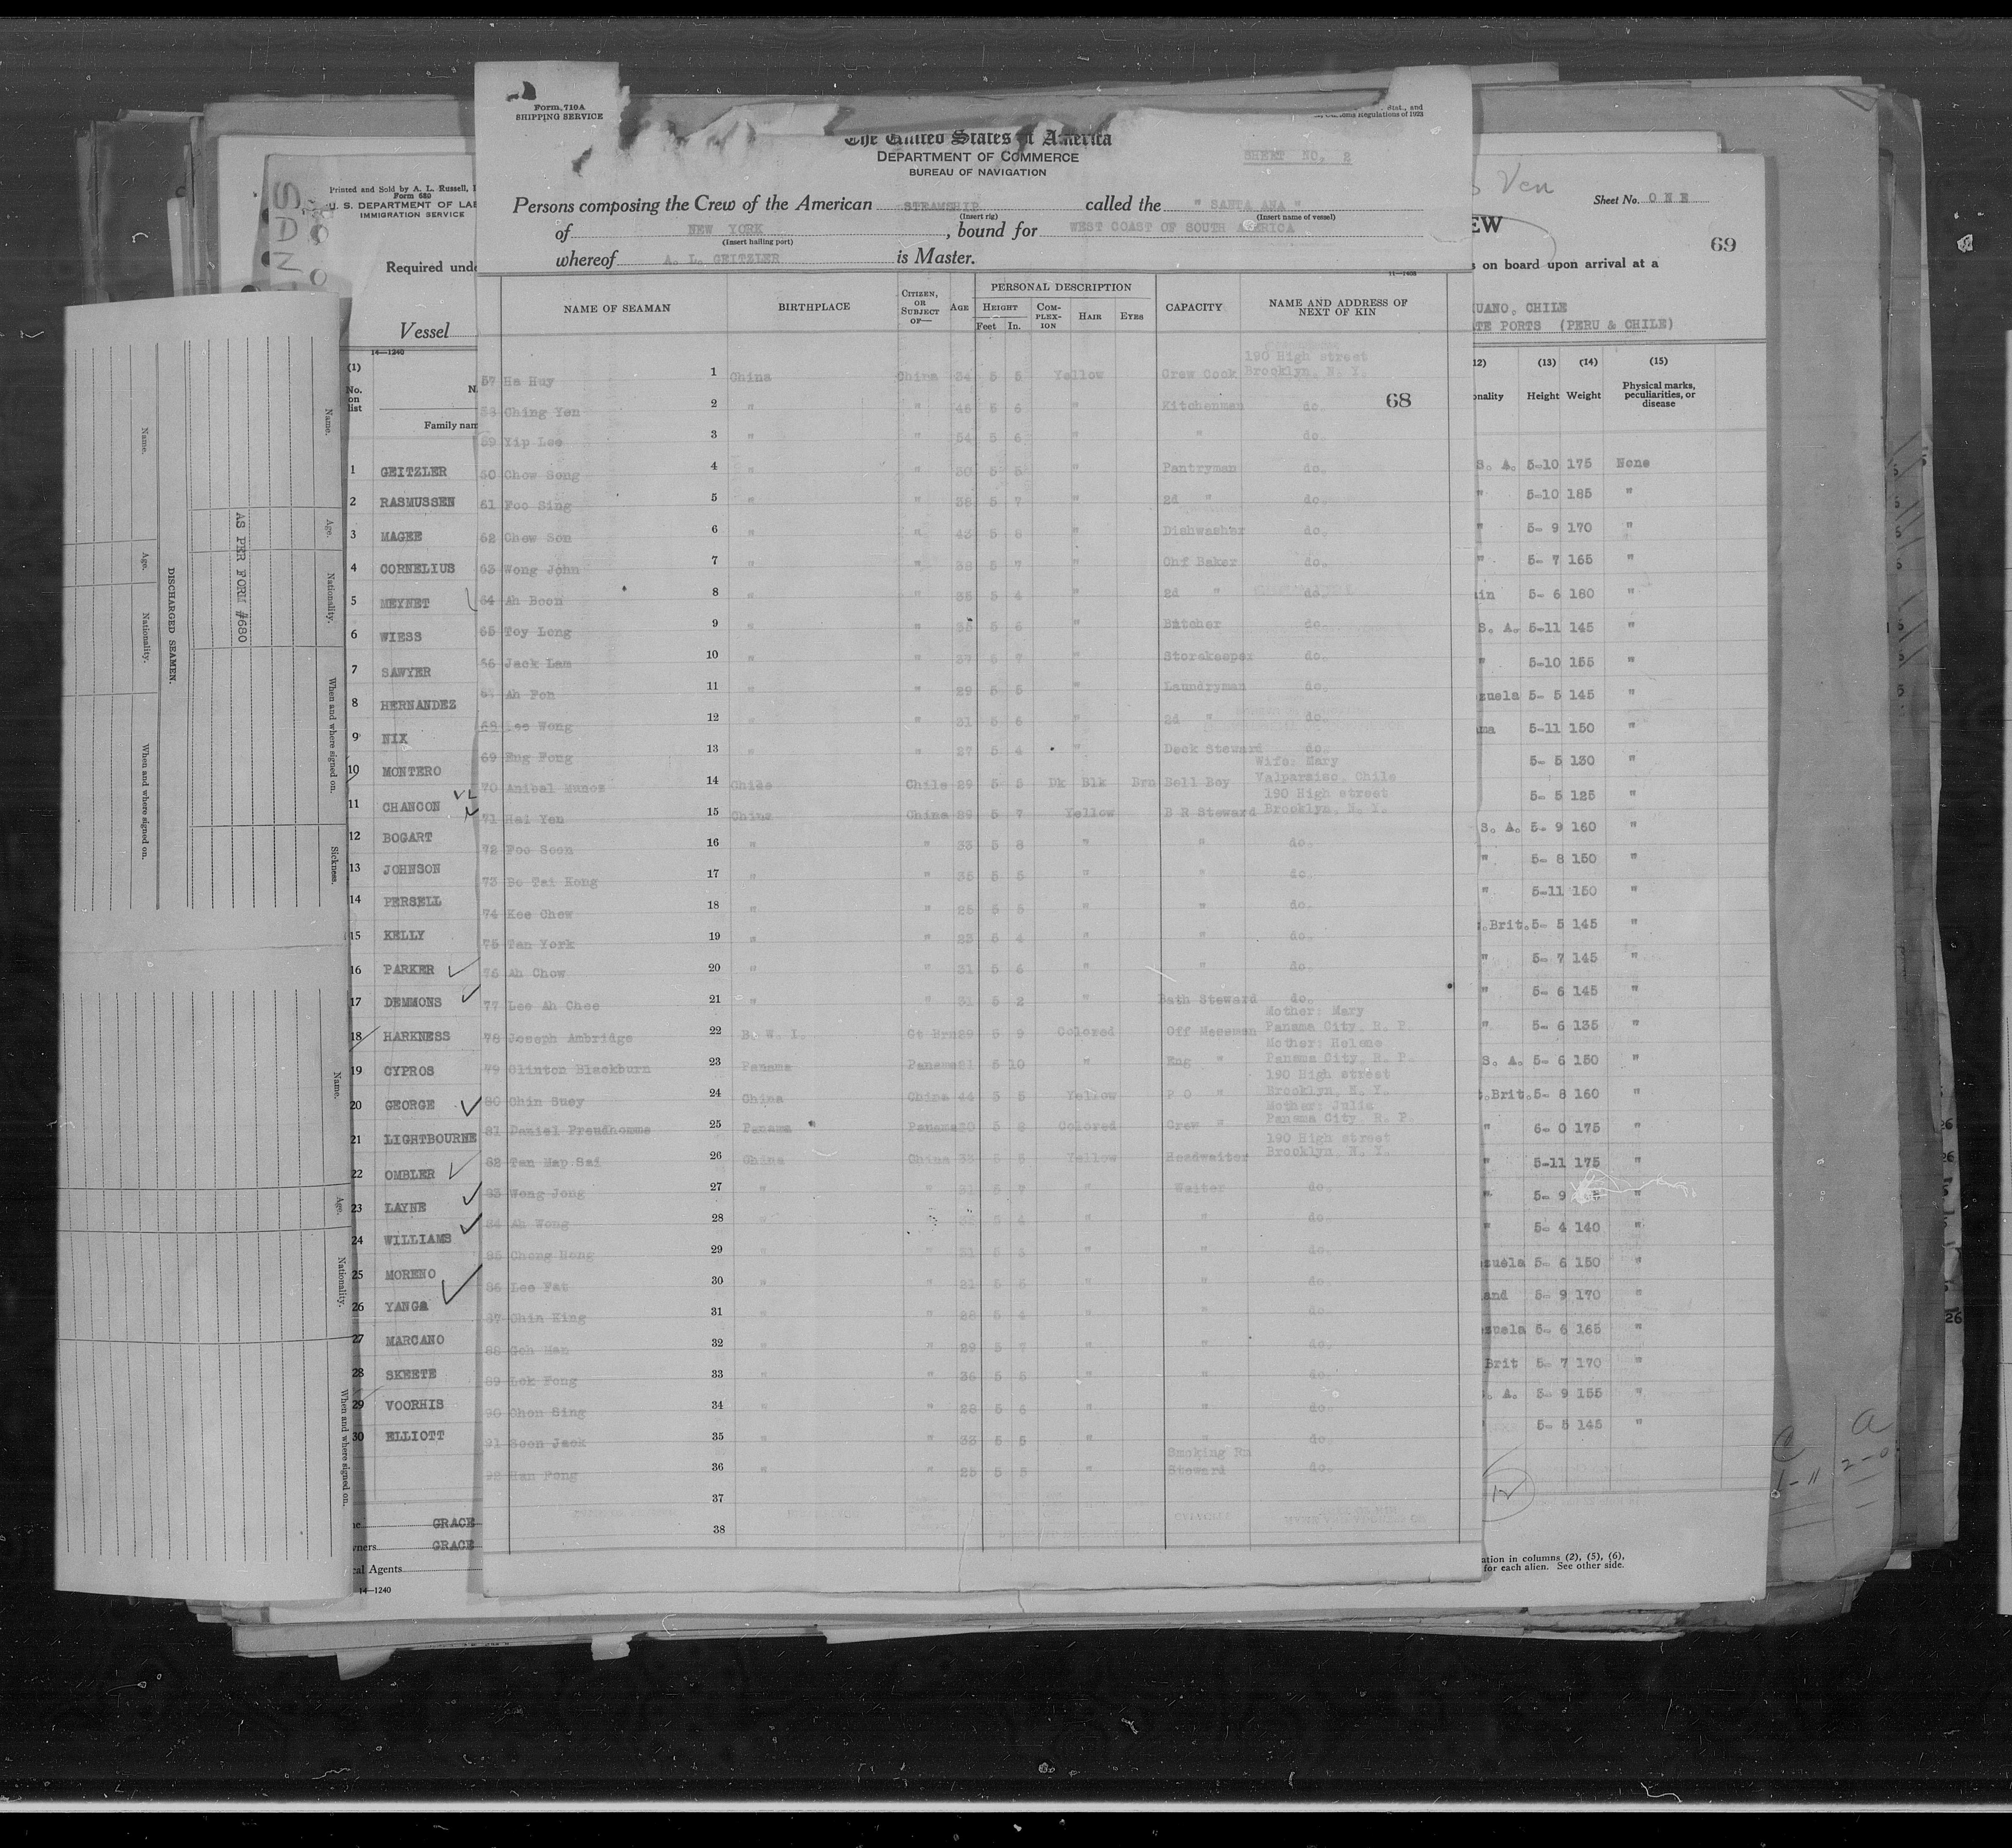 Form 710A
SHIPPING SERVICE
Stat., and
Regulations of 1923
The United States of America
DEPARTMENT OF COMMERCE
BUREAU OF NAVIGATION
SHEET NO. 2
Persons composing the Crew of the American STEAMSHIP called the " SANTA ANA "
(Insert rig) (Insert name of vessel)
of NEW YORK, bound for WEST COAST OF SOUTH AMERICA
(Insert hailing port)
whereof A. L. GEITZLER is Master.
11—1408
NAME OF SEAMAN BIRTHPLACE CITIZEN, OR SUBJECT OF— AGE PERSONAL DESCRIPTION HEIGHT Feet In. COMPLEXION HAIR EYES CAPACITY NAME AND ADDRESS OF NEXT OF KIN
190 High street
57 Ha Huy 1 China China 34 5 5 Yellow Crew Cook Brooklyn, N. Y.
68
58 Ching Yen 2 " " 45 5 6 " Kitchenman do.
59 Yip Lee 3 " " 54 5 6 " " do.
60 Chow Song 4 " " 30 5 5 " Pantryman do.
61 Foo Sing 5 " " 38 5 7 " 2d " do.
62 Chow Son 6 " " 43 5 8 " Dishwasher do.
63 Wong John 7 " " 38 5 7 " Chf Baker do.
64 Ah Boon 8 " " 35 5 4 " 2d " do.
65 Toy Long 9 " " 5 6 " Butcher do.
66 Jack Lam 10 " " 37 5 7 " Storekeeper do.
67 Ah Fon 11 " " 29 5 5 " Laundryman do.
68 Lee Wong 12 " " 31 5 6 " 2d " do.
69 Eng Fong 13 " " 27 5 4 " Deck Steward do.
Wife: Mary
70 Anibal Munoz 14 Chile Chile 29 5 5 Dk Blk Brn Bell Boy Valparaiso, Chile
190 High street
71 Hai Yen 15 China China 39 5 7 Yellow B R Steward Brooklyn, N. Y.
72 Foo Soon 16 " " 33 5 8 " " do.
73 So Tai Kong 17 " " 35 5 5 " " do.
74 Kee Chow 18 " " 25 5 5 " " do.
75 Tan York 19 " " 23 5 4 " " do.
76 Ah Chow 20 " " 31 5 6 " " do.
77 Lee Ah Chee 21 " " 31 5 2 " Bath Steward do.
Mother: Mary
78 Joseph Ambridge 22 B. W. I. Gt Brn 29 5 9 Colored Off Messman Panama City, R. P.
Mother: Helene
79 Clinton Blackburn 23 Panama Panama 21 5 10 " Eng " Panama City, R. P.
190 High street
80 Chin Suey 24 China China 44 5 5 Yellow P O " Brooklyn, N. Y.
Mother: Julia
81 Daniel Preudhomme 25 Panama Panama 20 5 8 Colored Crew " Panama City, R. P.
190 High street
82 Tan Hap Sai 26 China China 33 5 5 Yellow Headwaiter Brooklyn, N. Y.
83 Wong Jong 27 " " 31 5 7 " Waiter do.
84 Ah Wong 28 " " 5 4 " " do.
85 Chong Hong 29 " " 31 5 5 " " do.
86 Lee Fat 30 " " 21 5 5 " " do.
87 Chin King 31 " " 28 5 4 " " do.
88 Goh Han 32 " " 29 5 7 " " do.
89 Lok Fong 33 " " 36 5 5 " " do.
90 Chon Sing 34 " " 28 5 6 " " do.
91 Soon Jack 35 " " 33 5 5 " " do.
Smoking Rm
92 Han Fong 36 " " 25 5 5 " Steward do.
37
38
Printed and Sold by A. L. Russell,
Form 680
U. S. DEPARTMENT OF LA
IMMIGRATION SERVICE
Required und
Vessel
14—1240
(1)
No. on list
Family nam
1 GEITZLER
2 RASMUSSEN
3 MAGEE
4 CORNELIUS
5 MEYNET
6 WIESS
7 SAWYER
8 HERNANDEZ
9 NIX
10 MONTERO
11 CHANCON
12 BOGART
13 JOHNSON
14 PERSELL
15 KELLY
16 PARKER
17 DEMMONS
18 HARKNESS
19 CYPROS
20 GEORGE
21 LIGHTBOURNE
22 OMBLER
23 LAYNE
24 WILLIAMS
25 MORENO
26 YANGA
27 MARCANO
28 SKEETE
29 VOORHIS
30 ELLIOTT
GRACE
wners GRACE
cal Agents
14—1240
Ven
Sheet No. ONE
EW
69
s on board upon arrival at a
UANO, CHILE
TE PORTS (PERU & CHILE)
12) (13) (14) (15)
onality Height Weight Physical marks, peculiarities, or disease
S. A. 5-10 175 None
" 5-10 185 "
" 5- 9 170 "
" 5- 7 165 "
in 5- 6 180 "
S. A. 5-11 145 "
" 5-10 155 "
zuela 5- 5 145 "
ma 5-11 150 "
5- 5 130 "
5- 5 125 "
S. A. 5- 9 160 "
" 5- 8 150 "
" 5-11 150 "
.Brit. 5- 5 145 "
" 5- 7 145 "
" 5- 6 145 "
" 5- 6 135 "
S. A. 5- 6 150 "
.Brit. 5- 8 160 "
" 6- 0 175 "
" 5-11 175 "
" 5- 9 "
" 5- 4 140 "
zuela 5- 6 150 "
and 5- 9 170 "
zuela 5- 6 165 "
Brit 5- 7 170 "
. A. 5- 9 155 "
5- 5 145 "
ation in columns (2), (5), (6),
for each alien. See other side.
Name. Age. Nationality. When and where signed on. Sickness.
AS PER FORM #680
DISCHARGED SEAMEN.
Name. Age. Nationality. When and where signed on.
Name. Age. Nationality. When and where signed on.